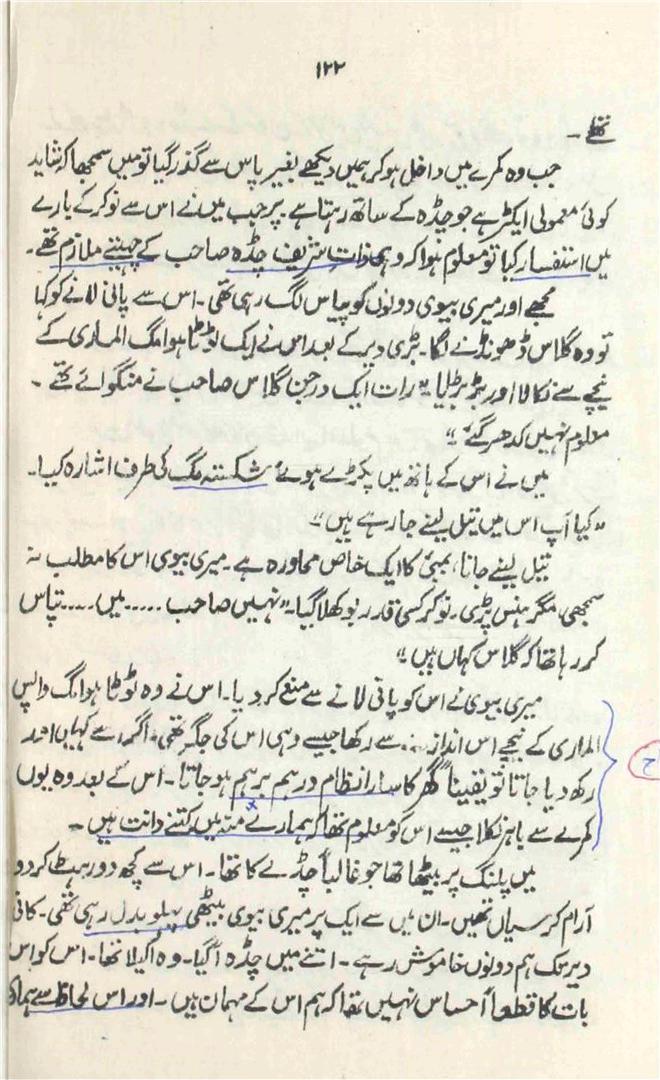 ۱۲۲
تھے۔
جب وہ کمرے میں داخل ہو کر، ہمیں دیکھے بغیر پاس سے گذر گیا تو میں سمجھا کہ شاید
کوئی معمولی ایکٹر ہے جو چڈہ کے ساتھ رہتا ہے پر جب میں نے اس سے نوکر کے بارے
میں استفسار کیا تو معلوم ہوا کہ وہی ذات شریف چڈہ صاحب کے چہیتے ملازم تھے۔
مجھے اور میری بیوی دونوں کو پیاس لگ رہی تھی۔ اس سے پانی لانے کو کہا
تو وہ گلاس ڈھونڈنے لگا۔ بڑی دیر کے بعد اس نے ایک ٹوٹا ہوا مگ الماری کے
نیچے سے نکالا اور بڑبڑایا "رات ایک درجن گلاس صاحب نے منگوائے تھے۔
معلوم نہیں کدھر گئے"
میں نے اس کے ہاتھ میں پکڑے ہوئے شکستہ مگ کی طرف اشارہ کیا۔
"کیا آپ اس میں تیل لینے جا رہے ہیں"
تیل لینے جانا، بمبئی کا ایک خاص محاورہ ہے۔ میری بیوی اس کا مطلب نہ
سمجھی، مگر ہنس پڑی۔ نوکر کسی قدر بوکھلا گیا۔ "نہیں صاحب ..... میں .... تپاس
کر رہا تھا کہ گلاس کہاں ہیں"
میری بیوی نے اس کو پانی لانے سے منع کر دیا۔ اس نے وہ ٹوٹا ہوا مگ واپس
الماری کے نیچے اس انداز سے رکھا جیسے وہی اس کی جگہ تھی۔ اگر اسے کہیں اور
رکھ دیا جاتا تو یقیناً گھر کا سارا نظام درہم برہم ہو جاتا۔ اس کے بعد وہ یوں
کمرے سے باہر نکلا جیسے اس کو معلوم تھا کہ ہمارے منہ میں کتنے دانت ہیں۔
میں پلنگ پر بیٹھا تھا جو غالباً چڈے کا تھا۔ اس سے کچھ دور ہٹ کر دو
آرام کرسیاں تھیں۔ ان میں سے ایک پر میری بیوی بیٹھی پہلو بدل رہی تھی۔ کافی
دیر تک ہم دونوں خاموش رہے۔ اتنے میں چڈہ آ گیا۔ وہ اکیلا تھا۔ اس کو اس
بات کا قطعاً احساس نہیں تھا کہ ہم اس کے مہمان ہیں۔ اور اس لحاظ سے